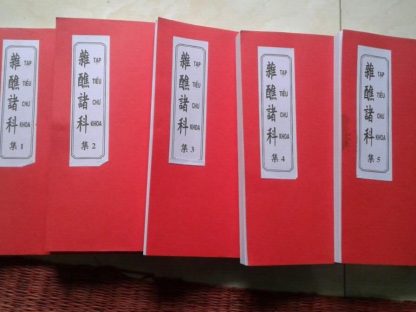 雜醮諸科
TẠP TIẾU CHƯ KHOA
集 1
雜醮諸科
TẠP TIẾU CHƯ KHOA
集 2
雜醮諸科
TẠP TIẾU CHƯ KHOA
集 3
雜醮諸科
TẠP TIẾU CHƯ KHOA
集 4
雜醮諸科
TẠP TIẾU CHƯ KHOA
集 5